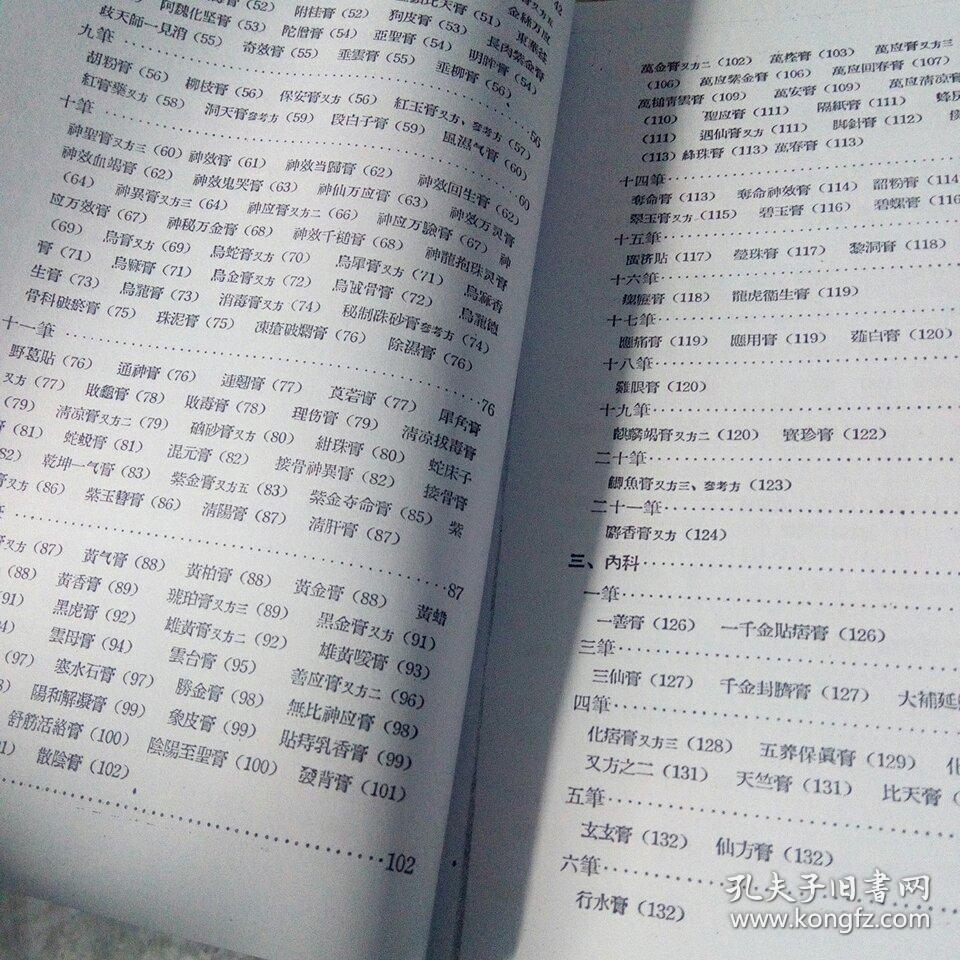 42
膏又方五
附桂膏（52）
比天膏（51）
金絲万应
阿魏化坚膏（53）
陀僧膏（54）
狗皮膏（53）
東葉益
歧天師一見消（55）
奇效膏（55）
亞聖膏（54）
長肉紫金膏
垂雲膏（55）
明眸膏（54）
垂柳膏（56）
九筆
56
胡粉膏（56）
柳枝膏（56）
保安膏又方（56）
紅玉膏又方、参考方（57）
紅膏藥又方（58）
洞天膏参考方（59）
段白子膏（59）
風濕气膏（60）
十筆
60
神聖膏又方三（60）神效膏（61）
神效当歸膏（62）
神效回生膏（62）
神效血竭膏（62）
神效鬼哭膏（63）
神仙万应膏（63）
神效万灵膏
（64）
神異膏又方三（64）
神应膏又方二（66）
神应万驗膏（67）
神
应万效膏（67）
神秘万金膏（68）
神效千槌膏（68）
神龍抱珠灵膏
（69）
烏膏又方（69）
烏蛇膏又方（70）
烏犀膏又方（71）
烏麻香
膏（71）
烏麻膏（71）
烏金膏又方（72）
烏龍德
生膏（73）
烏龍膏（73）
消毒膏又方（74）
秘制硃砂膏参考方（74）
骨科破瘀膏（75）
珠泥膏（75）
凍瘡破爛膏（76）
除濕膏（76）
十一筆
76
野葛貼（76）
通神膏（76）
連翹膏（77）
莨菪膏（77）
犀角膏
又方（77）
敗龜膏（78）
敗毒膏（78）
理伤膏（79）
清凉拔毒膏
（79）
清凉膏又方二（79）
硇砂膏又方（80）
紺珠膏（80）
蛇床子
膏（81）
蛇蛻膏（81）
混元膏（82）
接骨神異膏（82）
接骨膏
82）
乾坤一气膏（83）
紫金膏又方五（83）
紫金夺命膏（85）
紫
膏又方（86）
紫玉簪膏（86）
清陽膏（87）
清肝膏（87）
87
膏又方（87）
黃气膏（88）
黃柏膏（88）
黃金膏（88）
黃蜡
（88）
黃香膏（89）
琥珀膏又方三（89）
黑金膏又方（91）
91）
黑虎膏（92）
雄黃膏又方二（92）
雄黃嗳膏（93）
94）
雲母膏（94）
雲台膏（95）
善应膏又方二（96）
（97）
寒水石膏（97）
勝金膏（98）
無比神应膏（98）
陽和解凝膏（99）
象皮膏（99）
貼痔乳香膏（99）
舒筋活絡膏（100）
陰陽至聖膏（100）
發背膏（101）
散陰膏（102）
102
萬金膏又方二（102）
萬痊膏（103）
萬应膏又方三
（106）
萬应紫金膏（106）
萬应回春膏（107）
萬槌青雲膏（109）
萬安膏（109）
萬应清凉膏
（110）
聖应膏（111）
隔紙膏（111）
（111）
遇仙膏又方（111）
脚針膏（112）
（113）絳珠膏（113）萬春膏（113）
十四筆
奪命膏（113）
奪命神效膏（114）
韶粉膏（114
翠玉膏又方（115）
碧玉膏（116）
碧螺膏（116
十五筆
廣济贴（117）
瑩珠膏（117）
黎洞膏（118）
十六筆
瘰癧膏（118）
龍虎衞生膏（119）
十七筆
應痛膏（119）
應用膏（119）
薤白膏（120）
十八筆
雞眼膏（120）
十九筆
麒麟竭膏又方二（120）
寶珍膏（122）
二十筆
鯽魚膏又方三、参考方（123）
二十一筆
麝香膏又方（124）
三、內科
一筆
一善膏（126）
一千金貼痞膏（126）
三筆
三仙膏（127）
千金封臍膏（127）
大補延
四筆
化痞膏又方三（128）
五养保眞膏（129）
化
又方之二（131）
天竺膏（131）
比天膏（
五筆
玄玄膏（132）
仙方膏（132）
六筆
行水膏（132）
孔夫子旧书网
www.kongfz.com